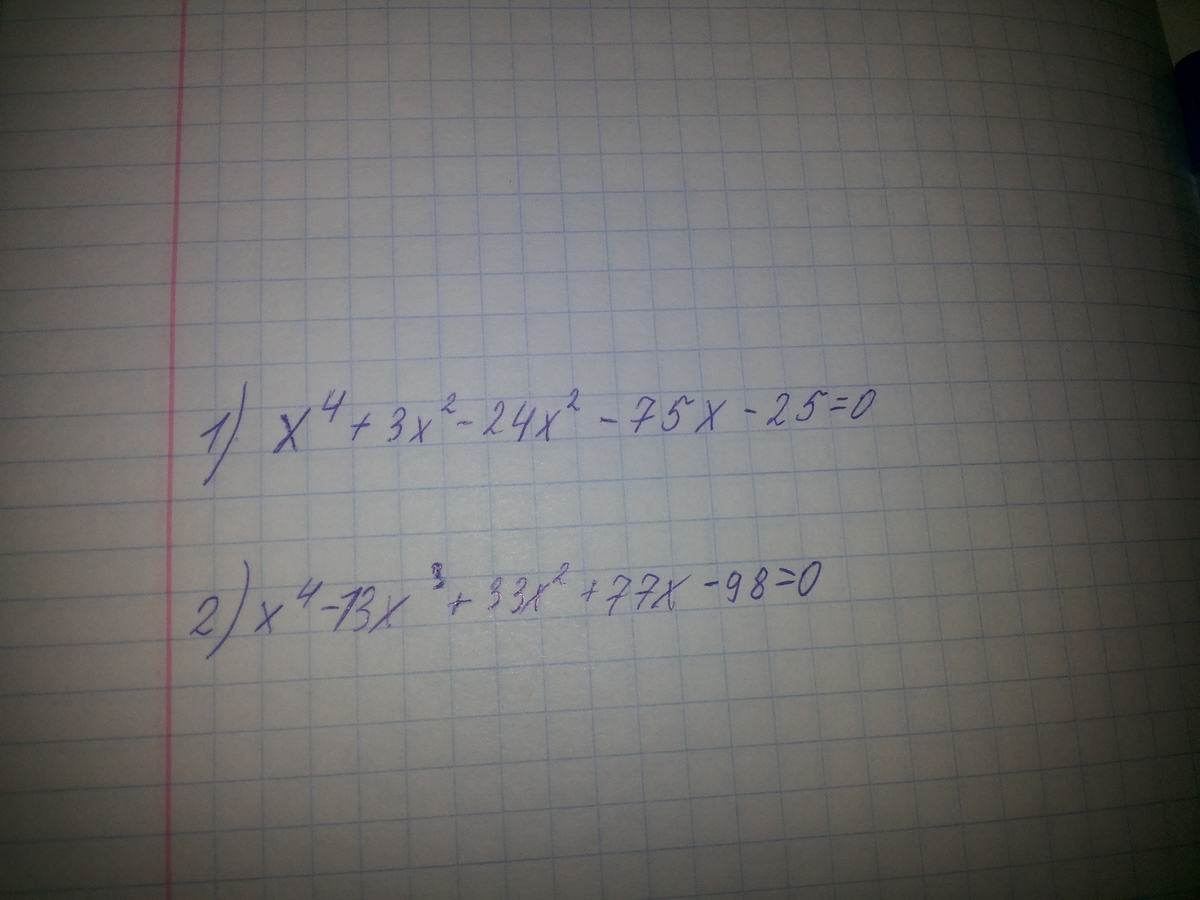 1) x⁴ + 3x² - 24x² - 75x - 25 = 0
2) x⁴ - 13x³ + 33x² + 77x - 98 = 0